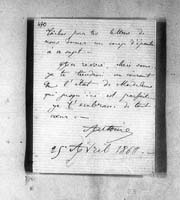 490
pour tes lettres de
nous donner un coup d'épaule
à ce sujet.
Au revoir, mais sous
je te tiendrai au courant
de l'état de Madeleine
qui jusqu'ici est parfait
je t'embrasse de tout
cœur.
Antoine
25 Avril 1868